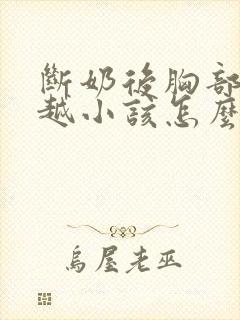 斷奶後胸部
越小該怎麼
烏屋老巫